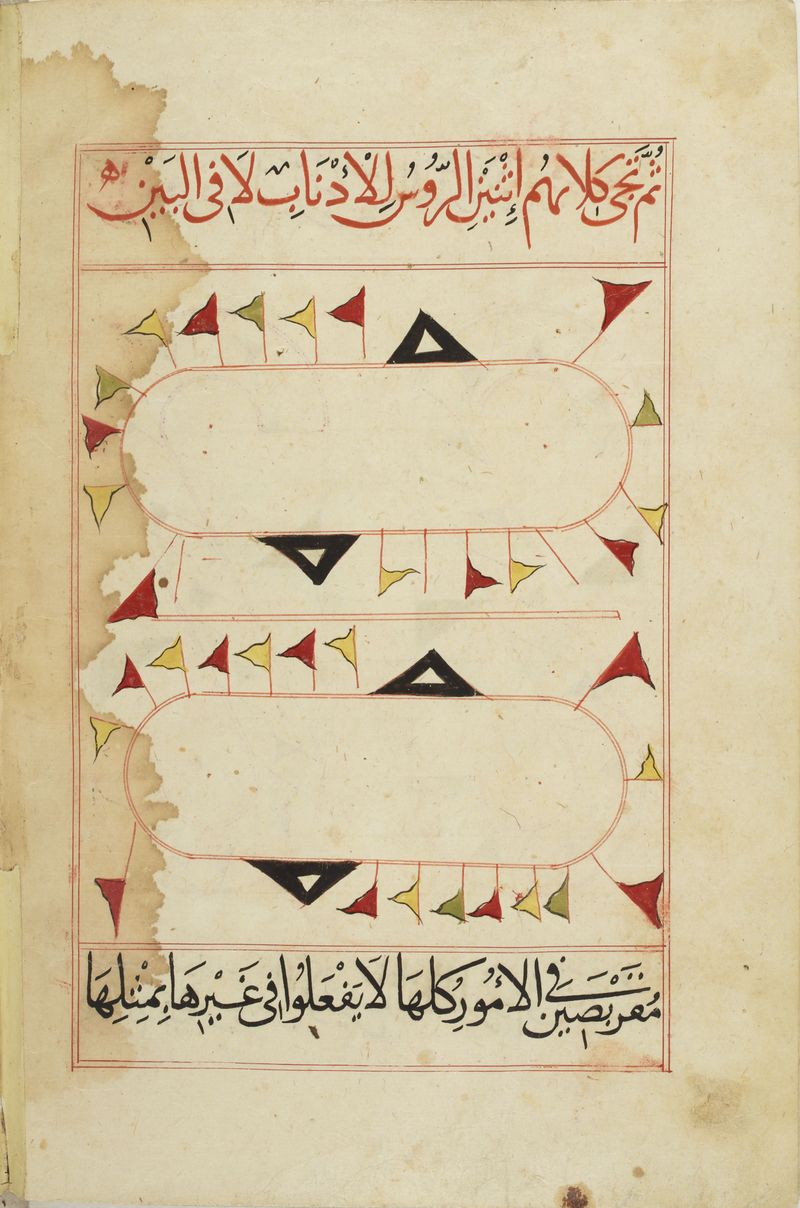 ثُمَّ نَجِى كِلاهُم إِثْنَيْنِ الرُّوُسُ لِلْأَذْنَابِ لَا فِى البَيْنِ
مُقَرْبَصِينَ فِى الأُمُورِ كُلِّهَا لَا يَفْعَلُوا فِى غَيْرِهَا بِمِثْلِهَا